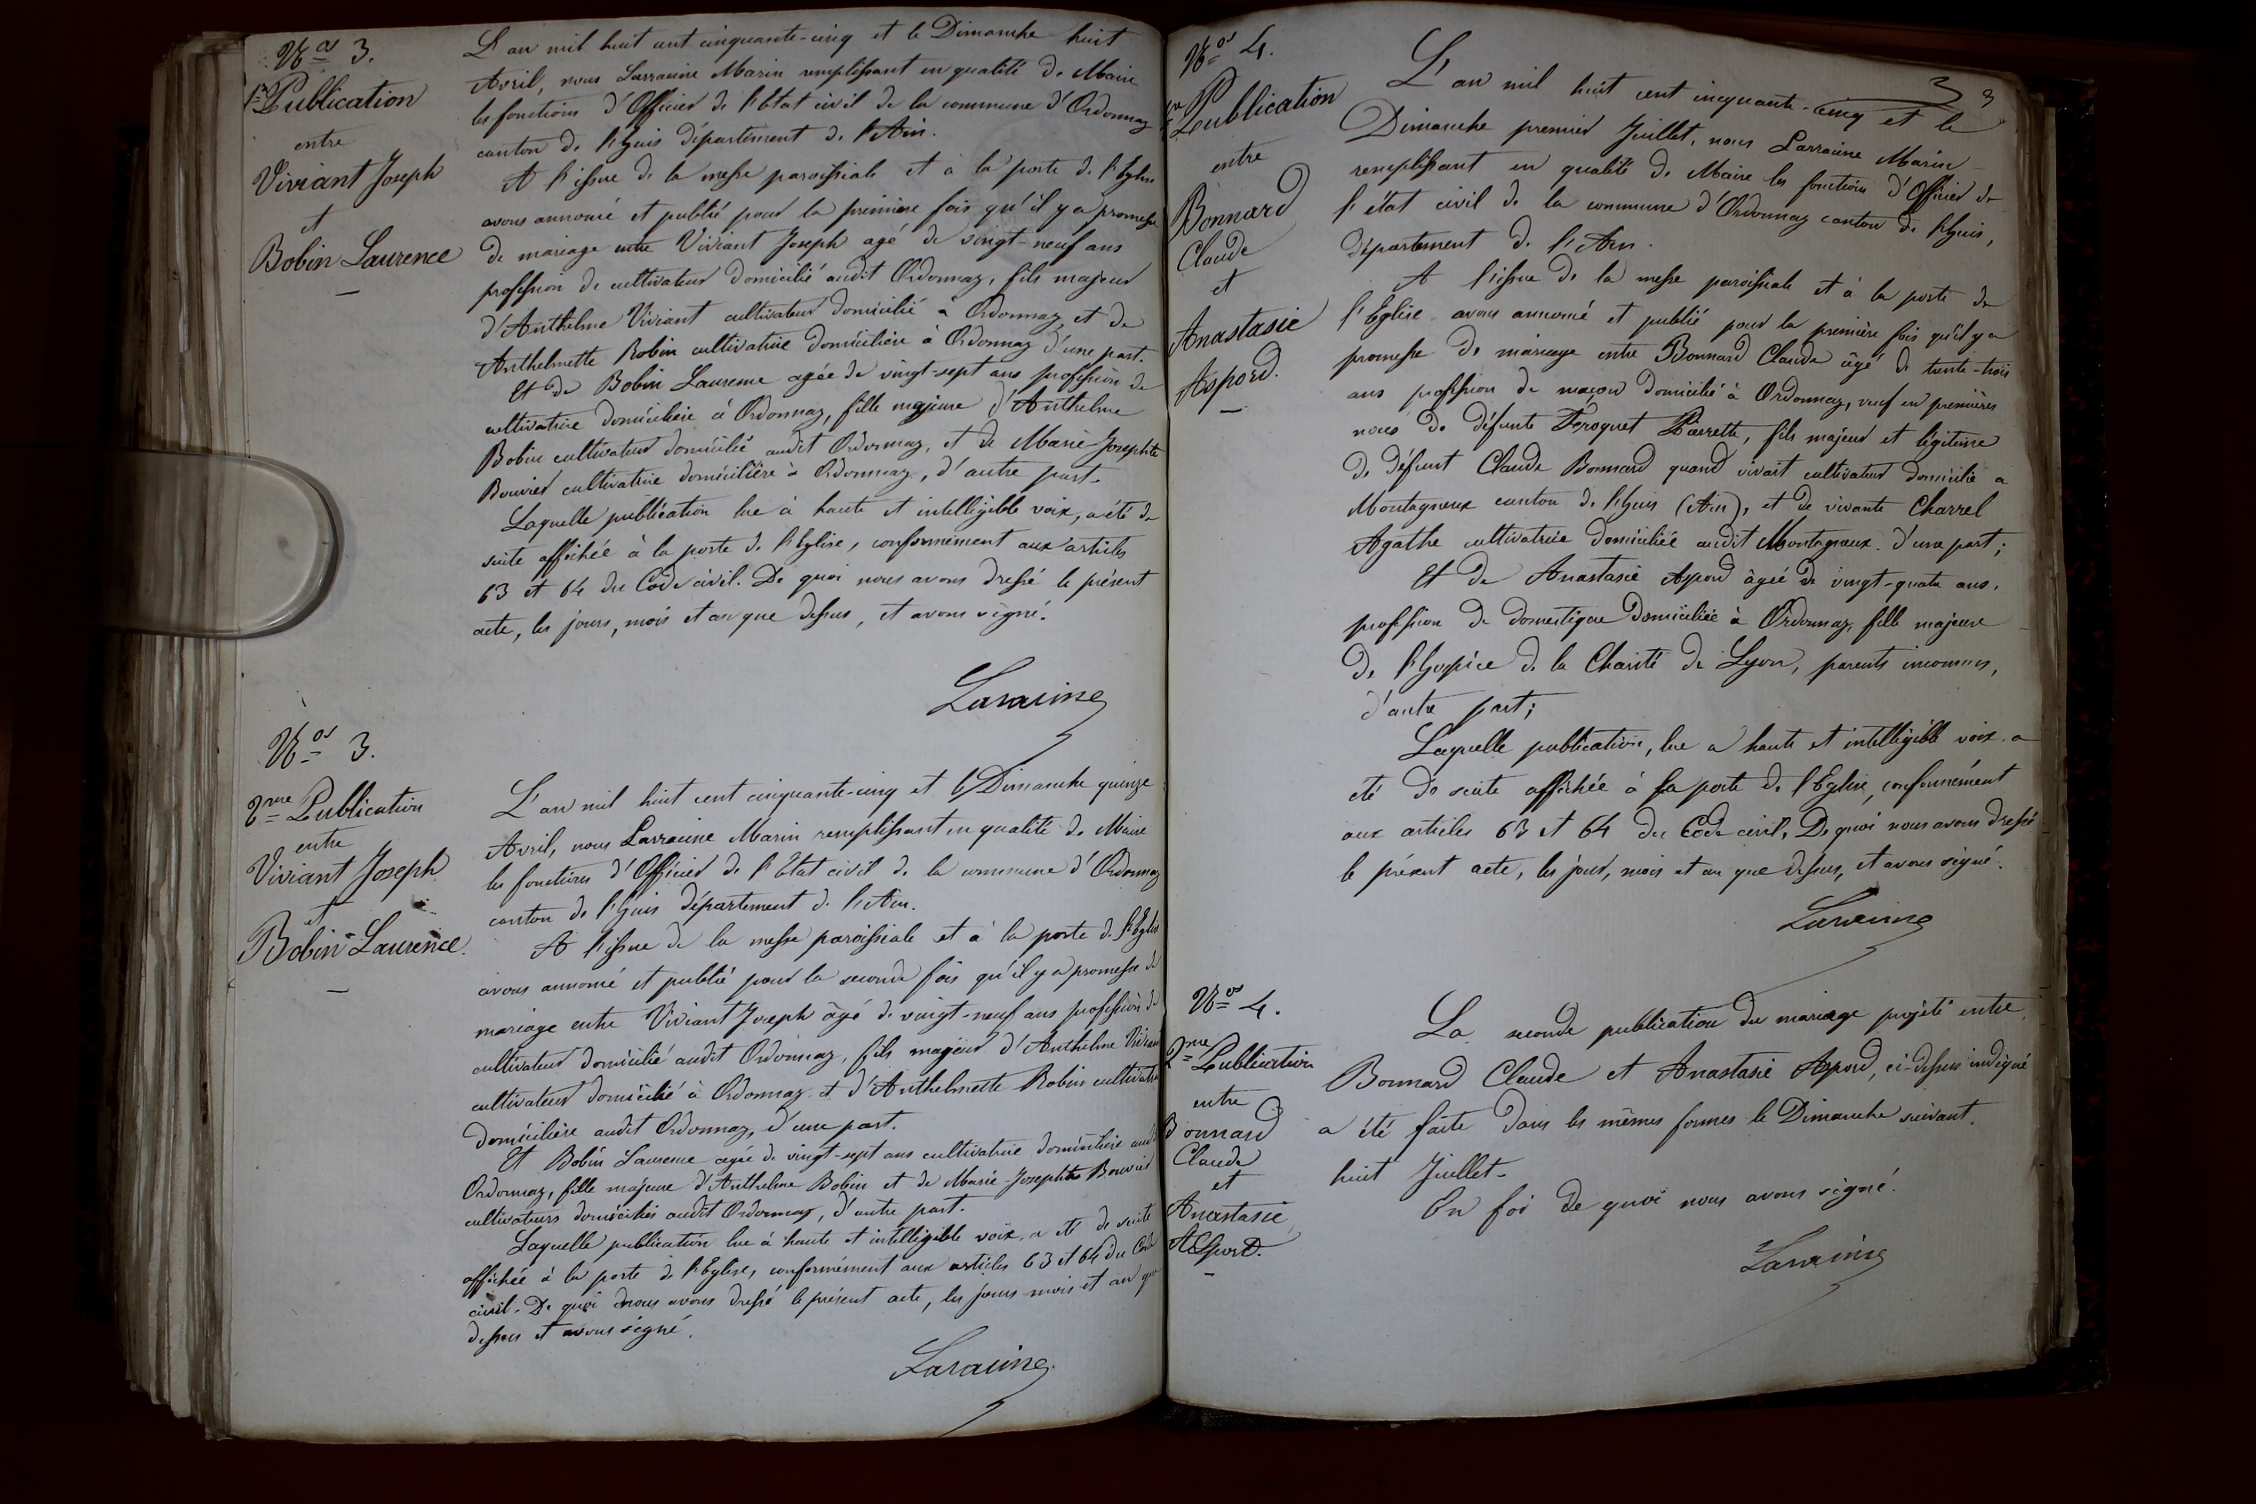 Nos 3.
1re Publication
entre
Viviant Joseph
et
Bobin Laurence
L'an mil huit cent cinquante-cinq et le Dimanche huit
Avril, nous Larraine Marin remplissant en qualité de Maire
les fonctions d'Officier de l'Etat civil de la commune d'Ordonnaz
canton de l'huis département de l'Ain.
A l'issue de la messe paroissiale et à la porte de l'Eglise
avons annoncé et publié pour la première fois qu'il y a promesse
de mariage entre Viviant Joseph agé de vingt-neuf ans
profession de cultivateur domicilié audit Ordonnaz, fils majeur
d'Anthelme Viviant cultivateur domicilié à Ordonnaz et de
Anthelmette Robin cultivatrice domicilière à Ordonnaz d'une part.
Et de Bobin Laurence agée de vingt-sept ans profession de
cultivatrice domicilière à Ordonnaz, fille majeure d'Anthelme
Bobin cultivateur domicilié audit Ordonnaz, et de Marie-Josephte
Bouvier cultivatrice domicilière à Ordonnaz, d'autre part.
Laquelle publication lue à haute et intelligible voix, a été de
suite affichée à la porte de l'Eglise, conformément aux articles
63 et 64 du Code civil. De quoi nous avons dressé le présent
acte, les jours, mois et an que dessus, et avons signé.
Larraine
Nos 3.
2me Publication
entre
Viviant Joseph
et
Bobin Laurence.
L'an mil huit cent cinquante-cinq et le Dimanche quinze
Avril, nous Larraine Marin remplissant en qualité de Maire
les fonctions d'Officier de l'Etat civil de la commune d'Ordonnaz
canton de l'huis département de l'Ain.
A l'issue de la messe paroissiale et à la porte de l'Eglise
avons annoncé et publié pour la seconde fois qu'il y a promesse de
mariage entre Viviant Joseph âgé de vingt-neuf ans profession de
cultivateur domicilié audit Ordonnaz, fils majeur d'Anthelme Viviant
cultivateur domicilié à Ordonnaz et d'Anthelmette Robin cultivatrice
domicilière audit Ordonnaz, d'une part.
Et Bobin Laurence agée de vingt-sept ans cultivatrice domicilière audit
Ordonnaz, fille majeure d'Anthelme Bobin et de Marie-Josephte Bouvier
cultivateurs domiciliés audit Ordonnaz, d'autre part.
Laquelle publication lue à haute et intelligible voix, a été de suite
affichée à la porte de l'Eglise, conformément aux articles 63 et 64 du Code
civil. De quoi nous avons dressé le présent acte, les jours mois et an que
dessus et avons signé.
Larraine
3 3
Nos 4.
1re Publication
entre
Bonnard
Claude
et
Anastasie
Aspord.
L'an mil huit cent cinquante-cinq et le
Dimanche premier Juillet, nous Larraine Marin
remplissant en qualité de Maire les fonctions d'Officier de
l'état civil de la commune d'Ordonnaz canton de l'huis,
département de l'Ain.
A l'issue de la messe paroissiale et à la porte de
l'Eglise avons annoncé et publié pour la première fois qu'il y a
promesse de mariage entre Bonnard Claude âgé de trente-trois
ans profession de maçon domicilié à Ordonnaz, veuf en premières
noces de défunte Feroquet Pierrette, fils majeur et légitime
de défunt Claude Bonnard quand vivait cultivateur domicilié à
Montagnieux canton de l'huis (Ain), et de vivante Charrel
Agathe cultivatrice domiciliée audit Montagnieux. d'une part;
Et de Anastasie Aspord âgée de vingt-quatre ans,
profession de domestique domiciliée à Ordonnaz, fille majeure
de l'hospice de la Charité de Lyon, parents inconnus,
d'autre part;
Laquelle publication, lue à haute et intelligible voix a
été de suite affichée à la porte de l'Eglise, conformément
aux articles 63 et 64 du Code civil. De quoi nous avons dressé
le présent acte, les jour, mois et an que dessus, et avons signé.
Larraine
Nos 4.
2me Publication
entre
Bonnard
Claude
et
Anastasie
Aspord.
La seconde publication du mariage projeté entre
Bonnard Claude et Anastasie Aspord, ci-dessus indiqué
a été faite dans les mêmes formes le Dimanche suivant,
huit Juillet.
En foi de quoi nous avons signé.
Larraine